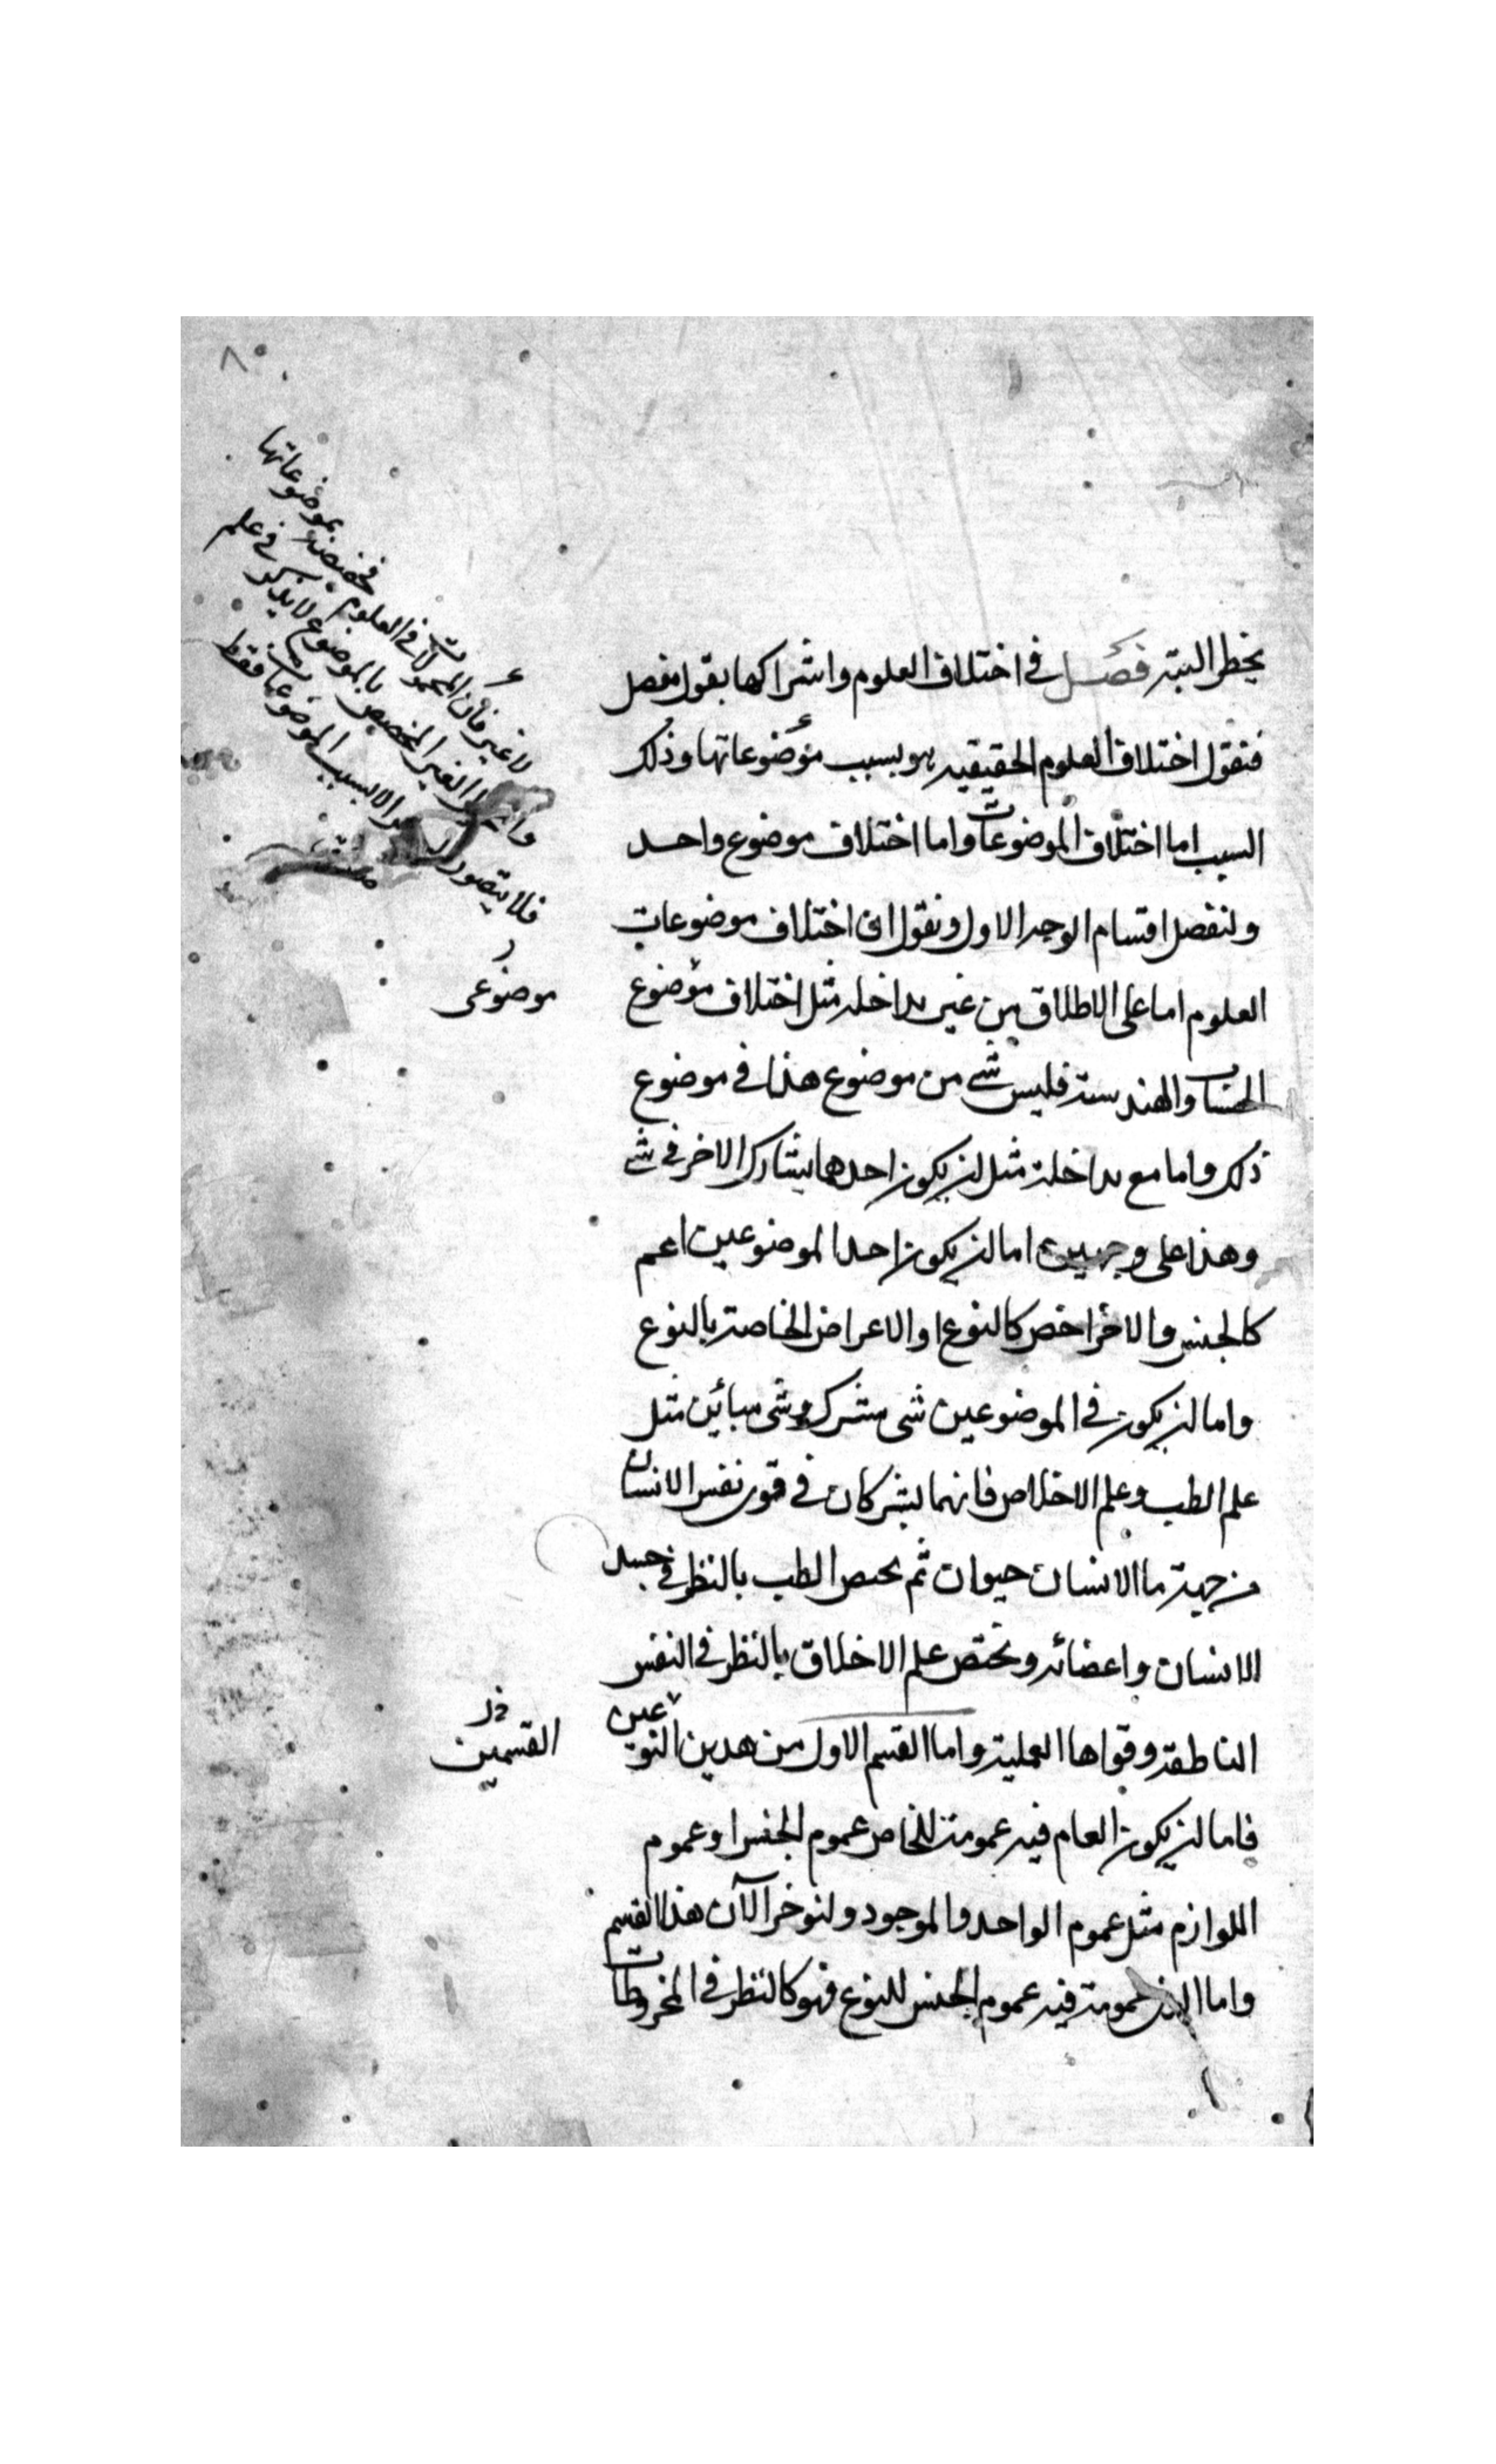 يخطر البته فصل في اختلاف العلوم واشراكها بقول مفصل
فنقول اختلاف العلوم الحقيقيه هو بسبب موضوعاتها وذلك
السبب اما اختلاف الموضوعات واما اختلاف موضوع واحد
ولنفصل اقسام الوجه الاول ونقول ان اختلاف موضوعات
العلوم اما على الاطلاق من غير مداخله مثل اختلاف موضوع
الحساب والهندسة فليس شے من موضوع هذا في موضوع
ذلك واما مع مداخلة مثل ان يكون احدهما يشارك الاخر في شے
وهذا على وجهين اما ان يكون احد الموضوعين اعم
كالجنس والاخر اخص كالنوع او الاعراض الخاصة بالنوع
واما ان يكون في الموضوعين شى مشترك وشى مبائن مثل
علم الطب وعلم الاخلاص فانهما يشتركان في قوى نفس الانسان
من جهة ما الانسان حيوان ثم يحتص الطب بالنظر في جسد
الانسان واعضائه ويختص علم الاخلاق بالنظر في النفس
الناطقة وقواها العملية واما القسم الاول من هدين النوعين
فاما ان يكون العام فيه عمومة للخاص عموم الجنس او عموم
اللوازم مثل عموم الواحد والموجود ولنوخر الآن هذا القسم
واما الذى عمومة فيه عموم الجنس للنوع فهو كالنظر في المخروطات
لا غير فان المحمولات في العلوم مخصصة بموضوعاتها
الغير المخصص بالموضوع لا يذكر في علم
فلا يتصور الا بسبب الموضوعات فقط
موضوعى
القسمين
٨